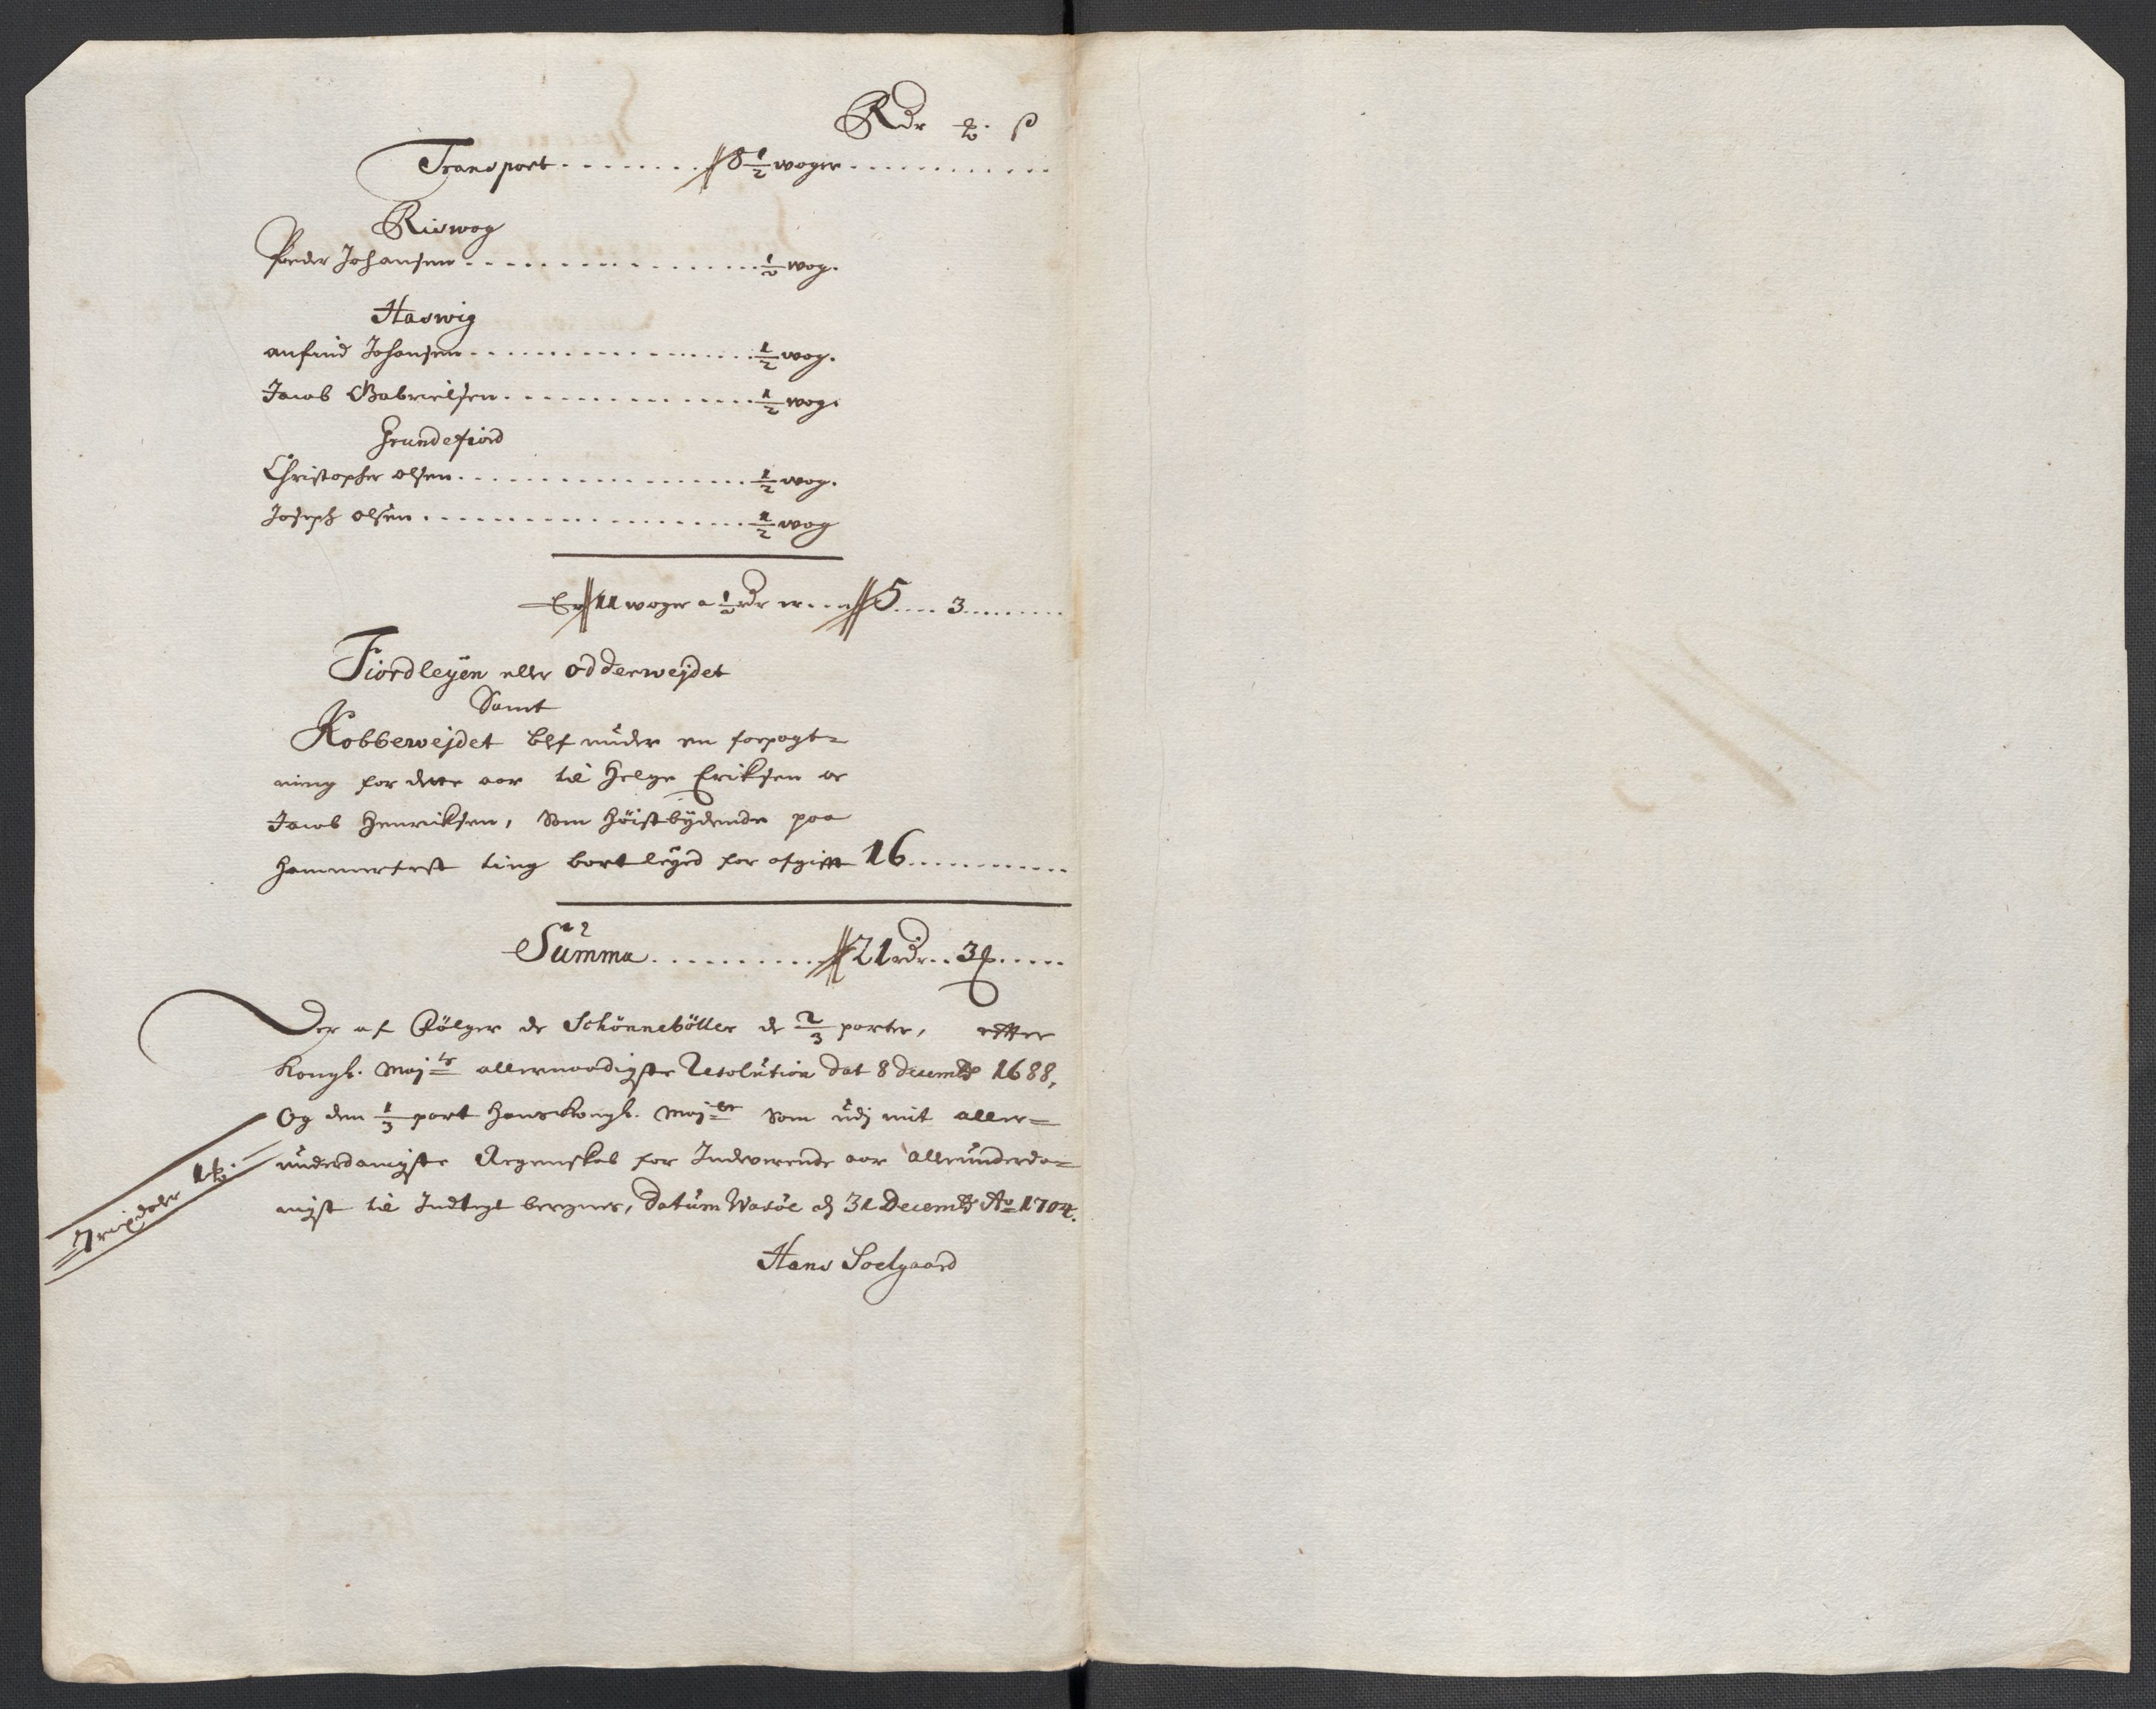 Rdr ꝑ. ß
Transport - - - - - - - 8 1/2 woger - - - - - - - - - -
Riswog
Peder Johansen - - - - - - - - - - - - 1/2 wog.
Haswig
anfind Johansen - - - - - - - - - - - - 1/2 wog.
Jacob Gabrielsen - - - - - - - - - - - 1/2 wog.
Grundefiord
Christopher olsen - - - - - - - - - - - - 1/2 wog.
Joseph olsen - - - - - - - - - - - - - - 1/2 wog
Er 11 woger a 1/2 rdr er - - - 5 - - - 3 - - - - - -
Fiordleyen eller odderwejdet
Samt
Kobbewejdet blf under en forpagt=
ning for dette aar til Helge Eriksen oc
Jacob Henriksen, Som Höistbydende paa
Hammerfest ting bortleyed for afgifft 16 - - - - - - - -
Summa - - - - - - - - 21 rdr - - 3 - - - -
Der af Fölger de Schönnebölles de 2/3 parter, effter
Kongl. Maj ts allernaadigste Resolution dat 8 decemb 1688,
Og den 1/3 part Hans Kongl. Maj ts Som udj mit aller=
underdanigste Regenskab for Indeverende aar allerunderda=
nigst til Indtegt beregnes, datum Wasöe d 31 Decemb Ao 1704.
Hans Soelgaard